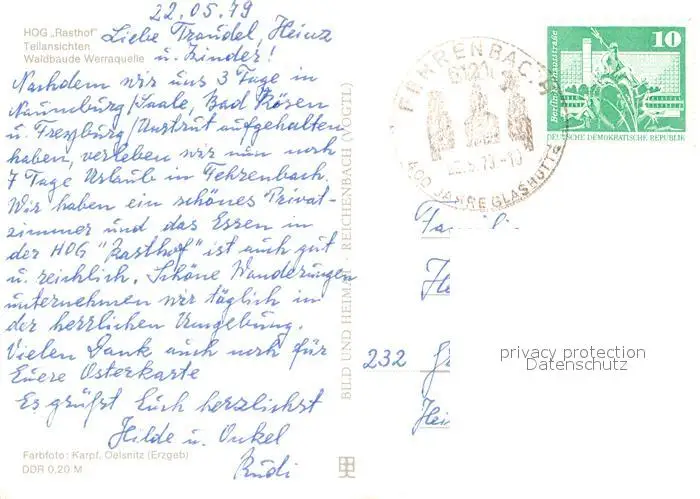 22.05.79
HOG „Rasthof"
Teilansichten
Waldbaude Werraquelle
Liebe Traudel, Heinz
u. Kinder!
Nachdem wir uns 3 Tage in
Naumburg/Saale, Bad Kösen
u. Freyburg/Unstrut aufgehalten
haben, verleben wir nun noch
7 Tage Urlaub in Fehrenbach.
Wir haben ein schönes Privat-
zimmer und das Essen in
der HOG "Rasthof" ist auch gut
u. reichlich. Schöne Wanderungen
unternehmen wir täglich in
der herrlichen Umgebung.
Vielen Dank auch noch für
Euere Osterkarte
Es grüßt Euch herzlichst
Hilde u. Onkel
Rudi
Farbfoto: Karpf, Oelsnitz (Erzgeb)
DDR 0,20 M
BILD UND HEIMAT · REICHENBACH (VOGTL)
FEHRENBACH
6121
400 JAHRE GLASHÜTTE
10
Berlin, Rathausstraße
DEUTSCHE DEMOKRATISCHE REPUBLIK
232
privacy protection
Datenschutz